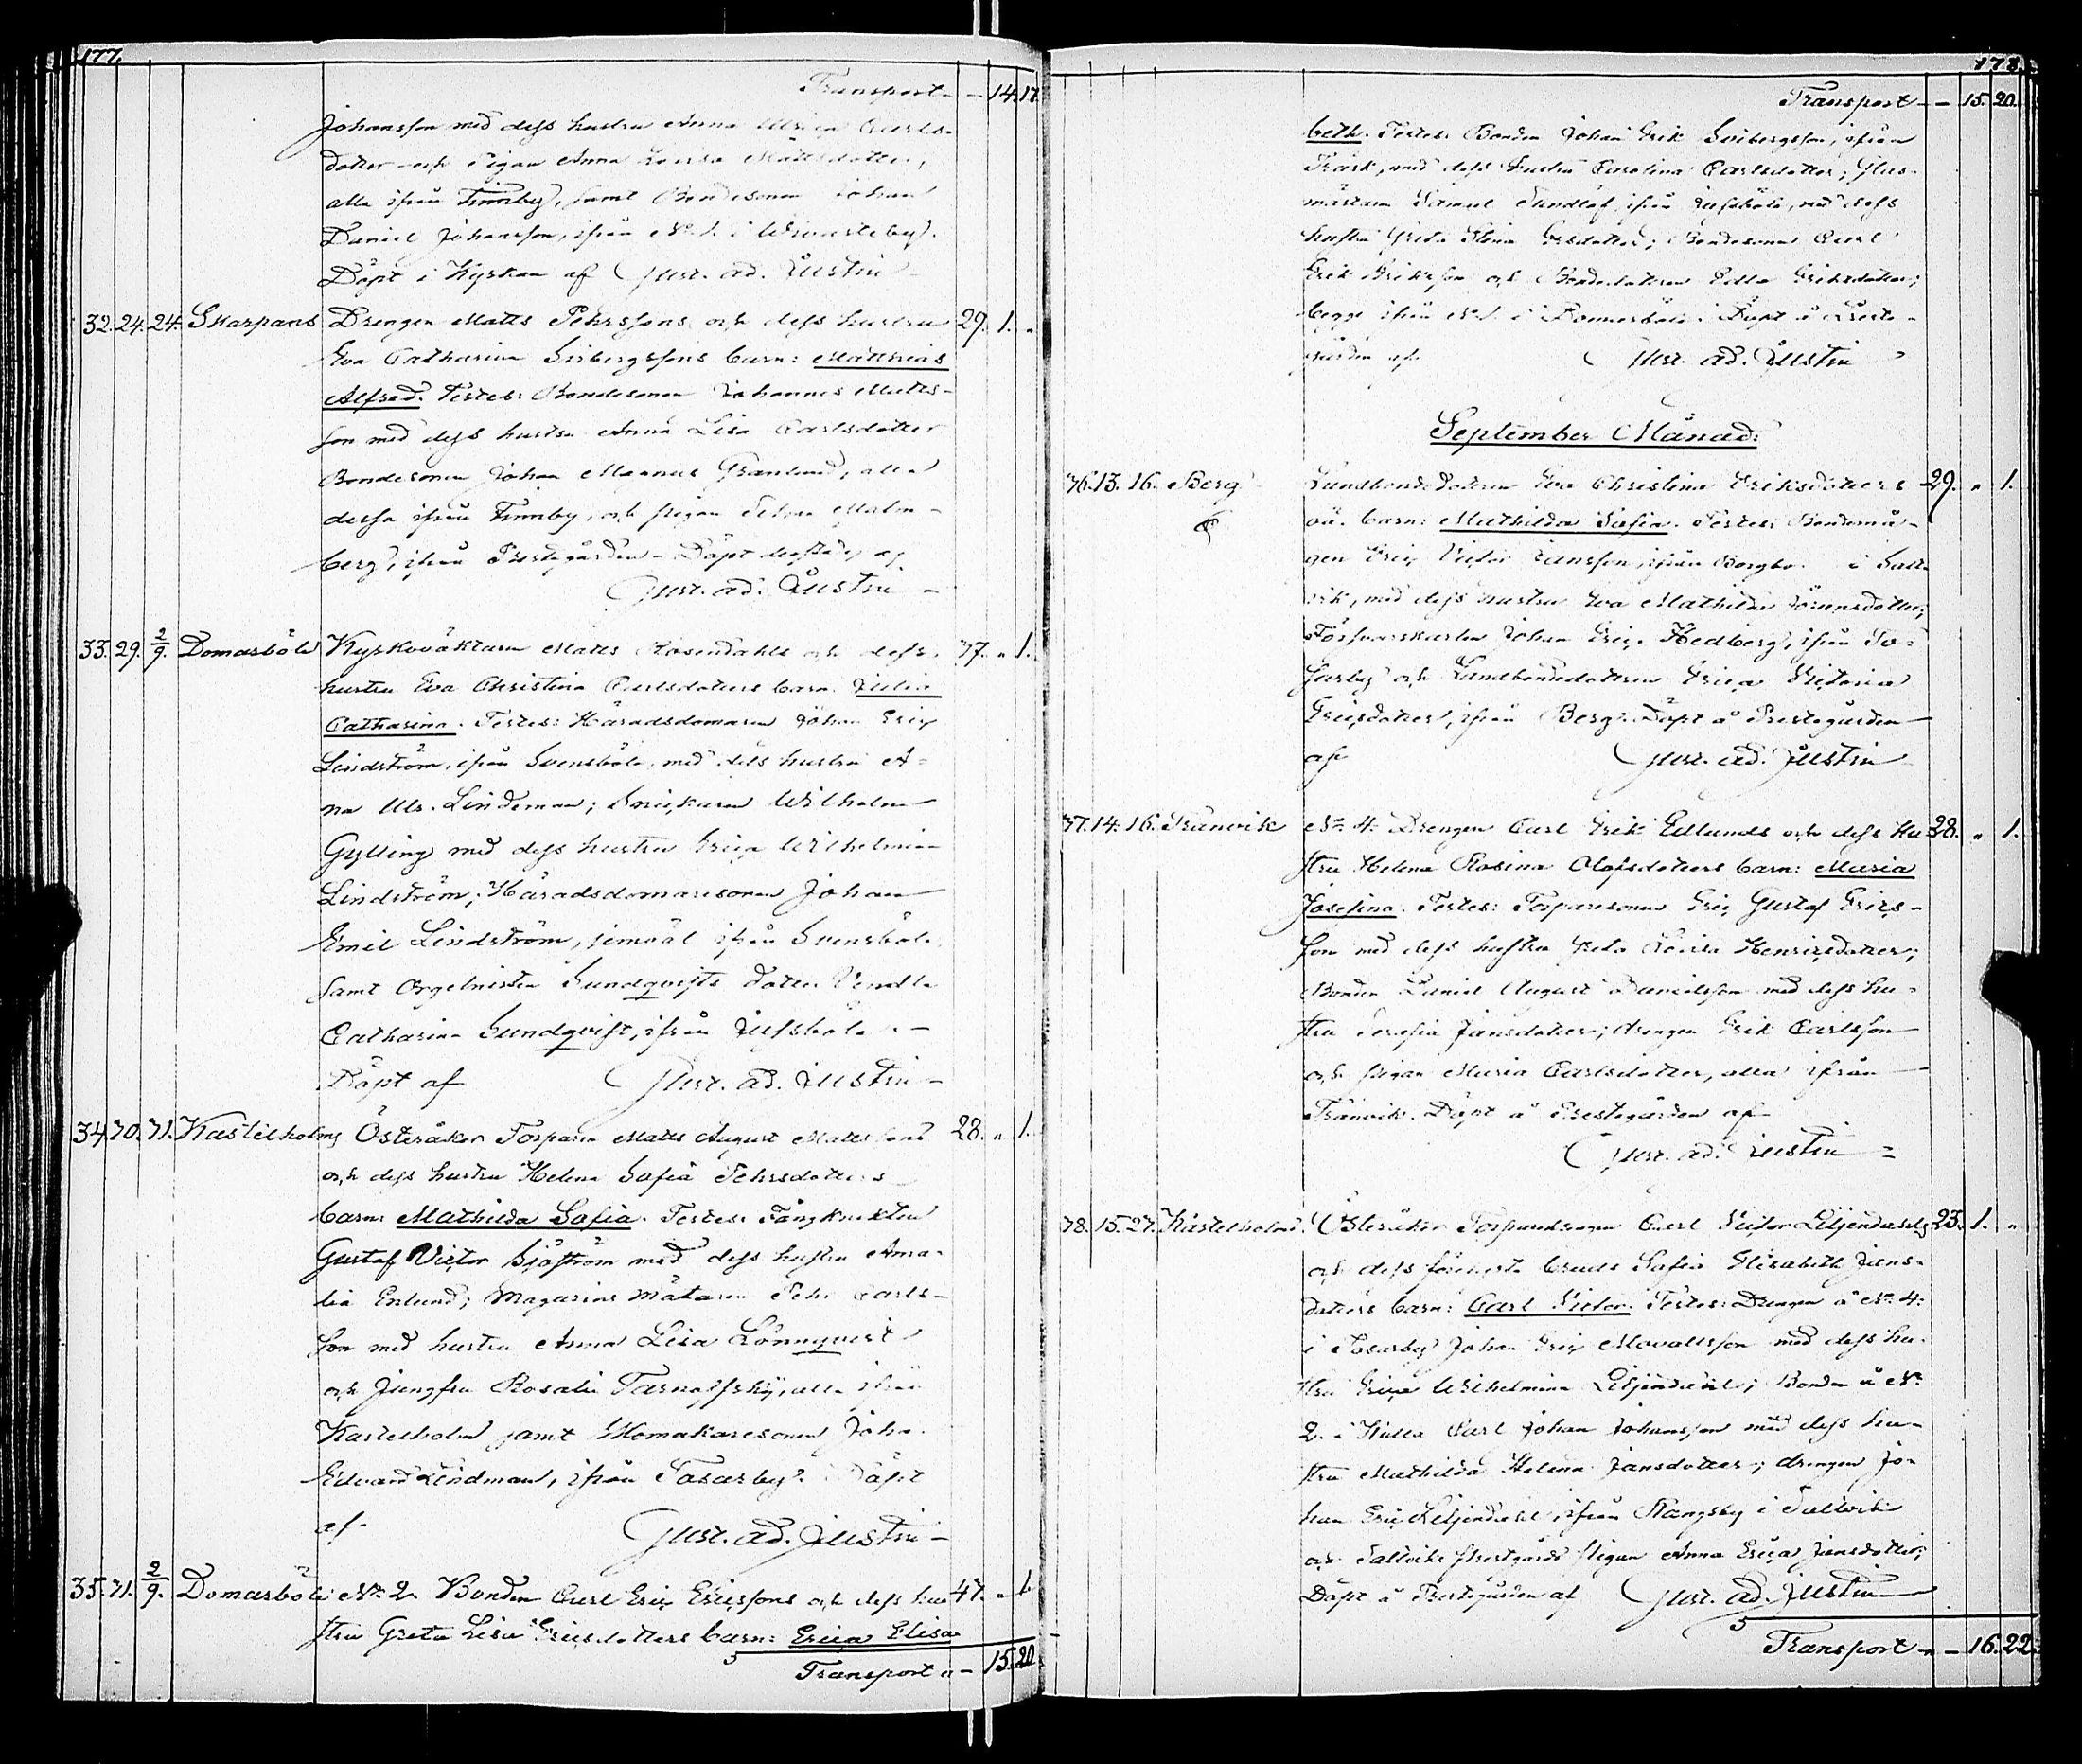 177.
Transport - - 14. 17.
Johansson med dess hustru Anna Ulrica Carls-
dotter och Pigan Anna Lovisa Mattsdotter,
alla ifrån Finnby, samt Bondesonen Johan
Daniel Johansson, ifrån N:o 1. i
Döpt i Kyrkan af Gust. Ad. Justin
32. 24. 24. Skarpans Drengen Matts Pehrssons och dess hustru 29. 1. „
Eva Catharina Sribergssons barn: Matthias
Alfred. Testes: Bondesonen Johannes Matts-
son med dess hustru Anna Lisa Carlsdotter
Bondesonen Johan Magnus Granlund, alla
dessa ifrån Finnby, och pigan Malm-
berg, ifrån Prestegården - Döpt af
Gust. ad. Justin -
33. 29. 2/9. Domarböle Kyrkoväktaren Matts Rosendahls och dess 37. „ 1.
hustru Eva Christina Carlsdotters barn: Julia
Catharina. Testes: Häradsdomaren Johan Eric
Lindström, ifrån Svensböle, med dess hustru An-
na Ulr. Lindeman; Snickaren Wilhelm
Gylling med dess hustru Erica Wilhelmina
Lindström; Häradsdomaresonen Johan
Emil Lindström, jemväl ifrån Svensböle
samt Orgelnisten Sundqvists dotter Vendla
Catharina Sundqvist, ifrån Jussböle. -
Döpt af Gust. ad. Justin -
34. 30. 31. Kastelholms Österåker Torparen Matts August Mattssons 28. „ 1.
och dess hustru Helena Sofia Pehrsdotters
barn: Mathilda Sofia. Testes: Fångknekten
Gustaf Victor Sjöström med dess hustru Ama-
lia Enlund; Magasins mätaren Pehr Carls-
son med hustru Anna Lisa Lönnqvist
och Jungfru Rosalie alla ifrån
Kastelholm samt Skomakaresonen Joha.
Edvard Lindman, ifrån Tosarby. Döpt
af. Gust. ad. Justin -
35. 31. 2/9. Domarböle N:o 2. Bonden Carl Eric Ericssons och dess hu- 47. „ 1.
stru Greta Lisa Ericsdotters barn: Erica Elisa-
Transport „ - 15. 20.
178.
Transport - - 15. 20.
beth. Testes: Bonden Johan Erik Sribergsson, ifrån
Träsk, med dess hustru Carolina Carlsdotter; Glas-
mästaren Samuel Sundlöf ifrån Jussböle, med dess
hustru Greta Stina Ersdotter; Bondesonen Carl
Erik Eriksson och Bondedottren Edla Eriksdotter;
begge ifrån N:o 1. i Domarböle. Döpt å Preste-
gården af. Gust. ad. Justin
September Månad:
36. 13. 16. Berg Landbondedottren Eva Christina Eriksdotters 29. „ 1.
oä. barn: Mathilda Sofia. Testes: Bondemå-
gen Eric Victor Jansson, ifrån Borgbo i Salt-
vik, med dess hustru Eva Mathilda Göransdotter,
Försvarskarlen Johan Eric Hedberg, ifrån To-
sarby och Landbondedottren Erica Victoria
Ericsdotter, ifrån Berg. Döpt å Prestegården
af Gust. ad. Justin
37. 14. 16. Tranvik N:o 4. Drengen Carl Erik Edlunds och dess hu- 28. „ 1.
stru Helena Rosina Olofsdotters barn: Maria
Josefina. Testes: Torparesonen Eric Gustaf Erics-
son med dess hustru Greta Lovisa Henricsdotter;
Bonden Daniel August Danielsson med dess hu-
stru Serafia Jansdotter; drengen Erik Carlsson
och pigan Maria Carlsdotter, alla ifrån
Tranvik. Döpt å Prestegården af
Gust. ad. Justin -
38. 15. 27. Kastelholms Österåker Torparedrengen Carl Victor Liljendahls 23. 1. „
och dess förehafde brud Sofia Elisabeth Jans-
dotters barn: Carl Victor. Testes: Drengen å N:o 4.
i Tosarby Johan Eric med dess hu-
stru Erica Wilhelmina Liljendahl; Bonden å N:o
2. i Hulta Carl Johan Johansson med dess hu-
stru Mathilda Helena Jansdotter; drengen Jo-
han Eric Liljendahl, ifrån Rangsby i Saltvik
och Saltviks Prestgårds Pigan Anna Erica Jansdotter,
Döpt å Prestegården af Gust. ad. Justin
Transport - - 16. 22.